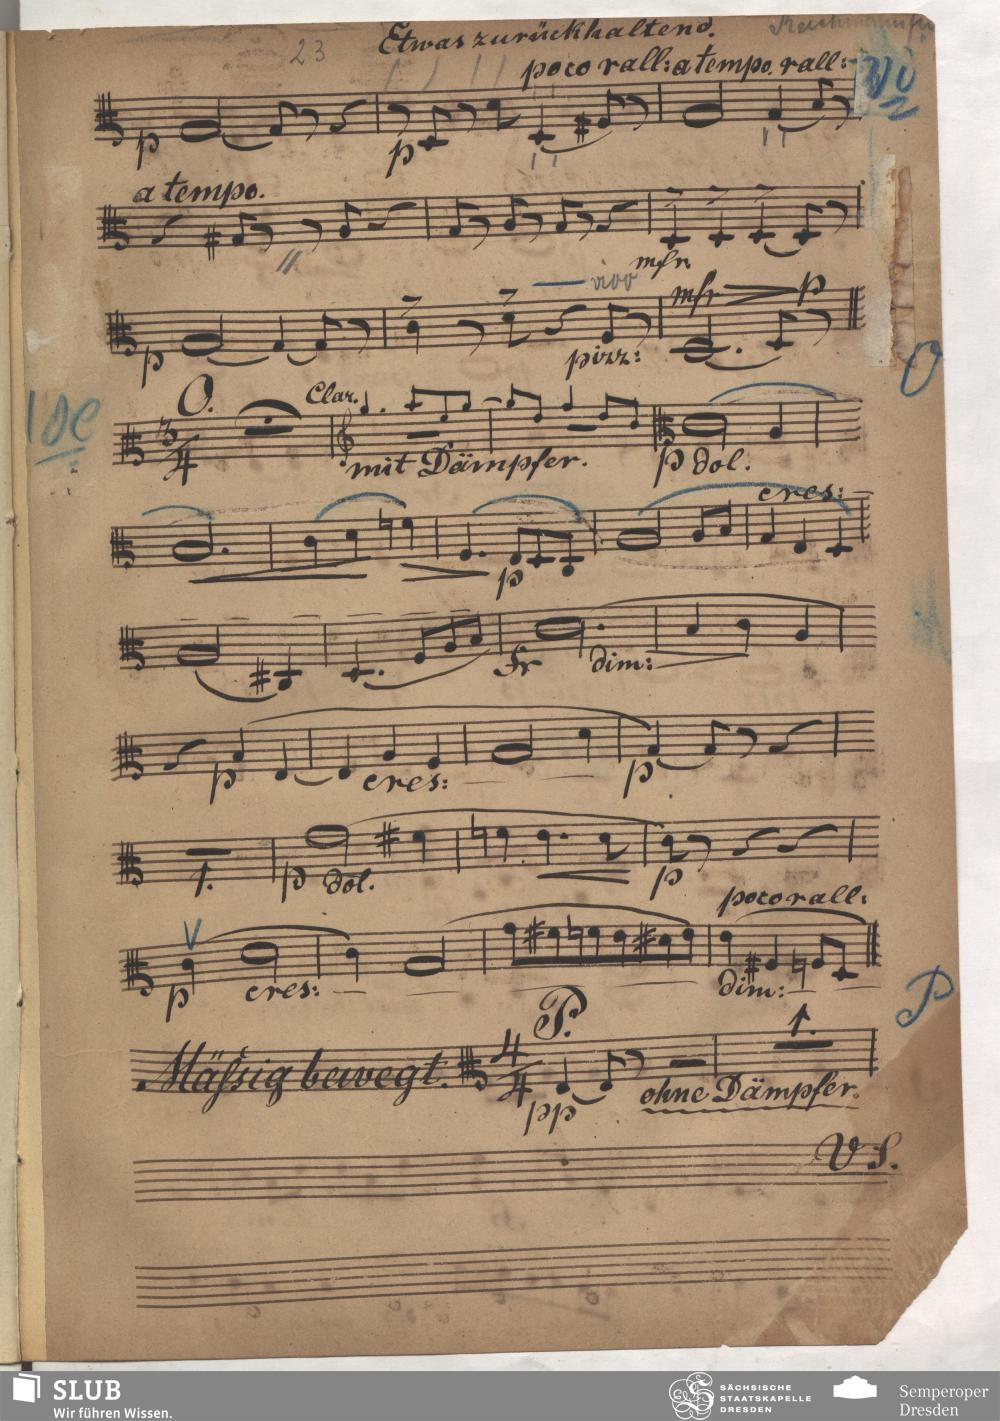 23
Etwas zurückhaltend.
poco rall: a tempo. rall:
p
p
a tempo.
mfr.
mfr p
p
pizz:
O.
O
Clar.
3
4
mit Dämpfer.
p dol.
cres:
p
fr dim:
p
cres:
p
1.
p dol.
p
poco rall:
V
p
cres:
dim:
P
P.
1.
Mäßig bewegt.
4
4
pp
ohne Dämpfer.
V. S.
SLUB
Wir führen Wissen.
SÄCHSISCHE
STAATSKAPELLE
DRESDEN
Semperoper
Dresden